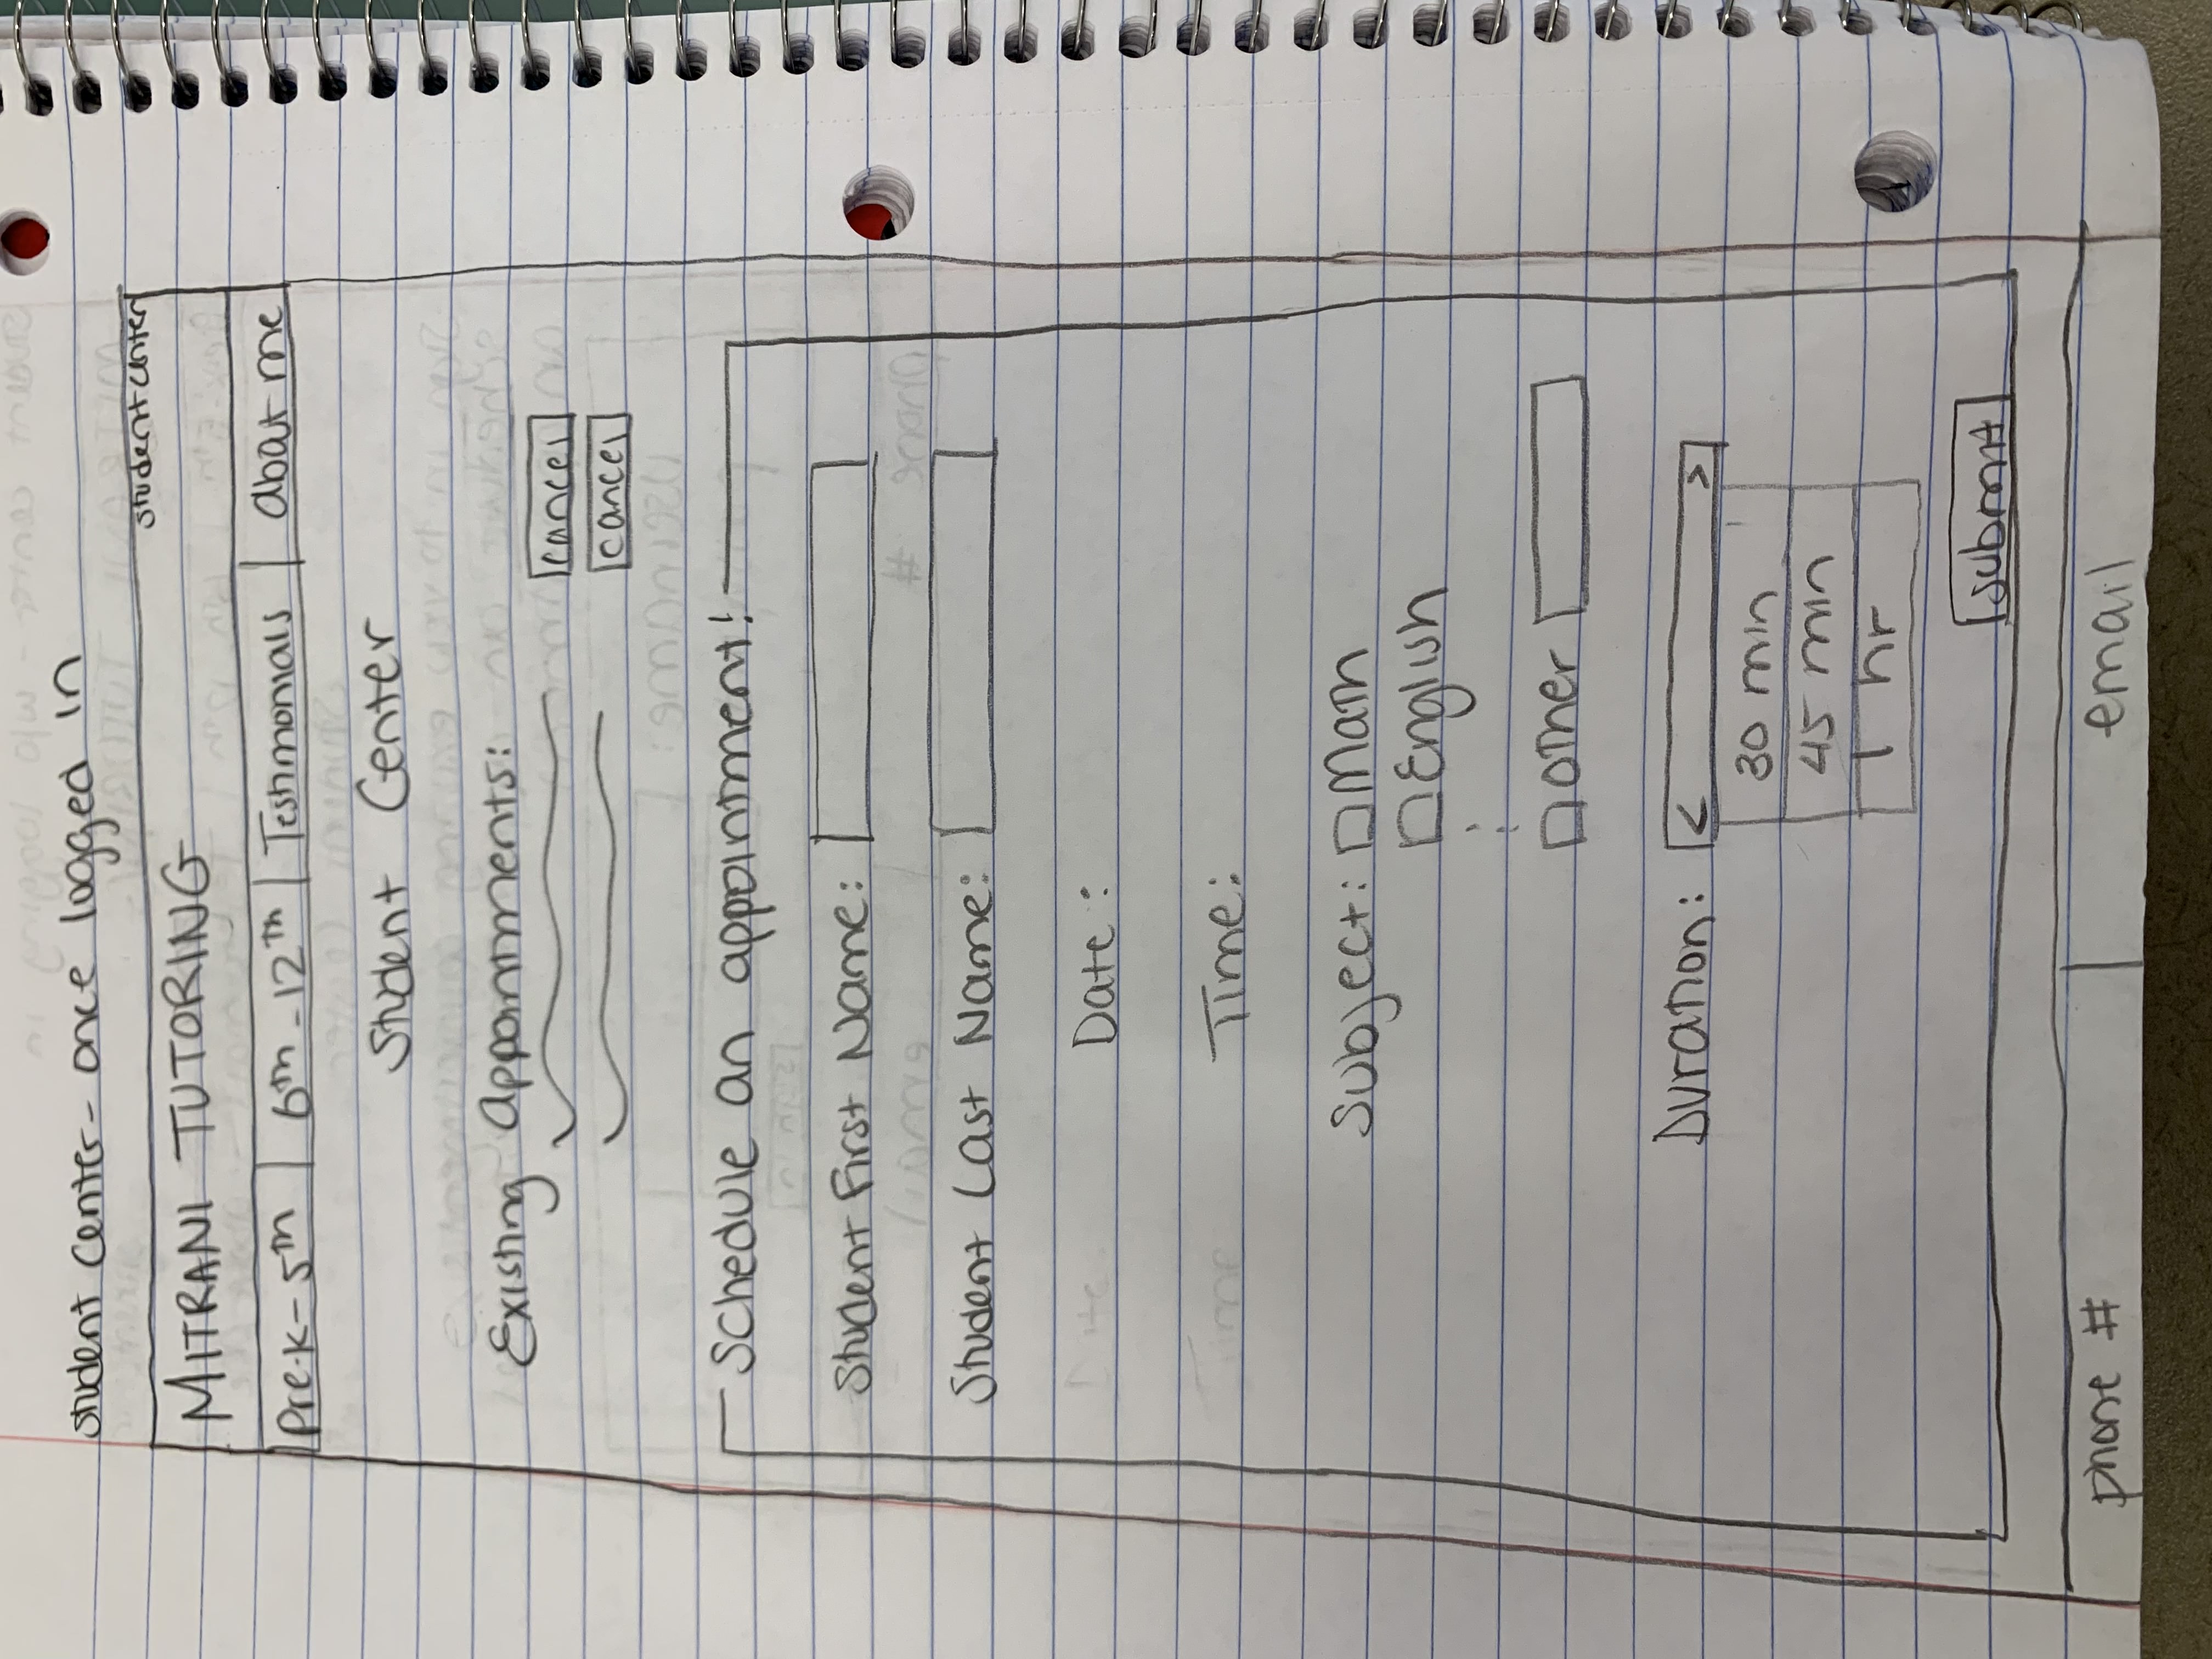 Student Center - once logged in
student center
MITRANI TUTORING
Pre-K-5th 6th-12th Testimonials about me
Student Center
Existing appointments:
cancel
cancel
Schedule an appointment!
Student First Name:
Student Last Name:
Date:
Time:
Subject: Math
English
other
Duration: < >
30 min
45 min
1 hr
submit
phone # email